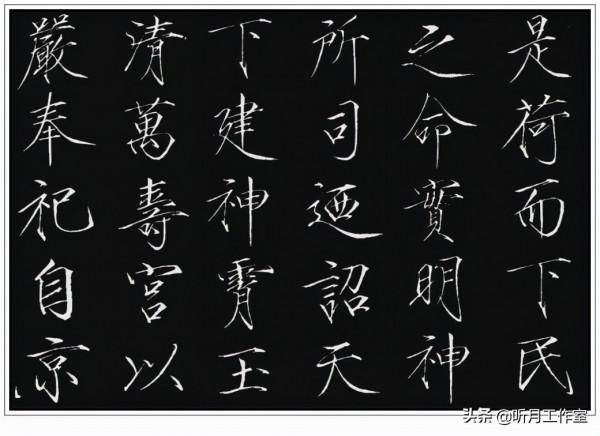 是荷而下民
之命實明神
所司迺詔天
下建神霄玉
清萬壽宮以
嚴奉祀自京
头条@听月工作室